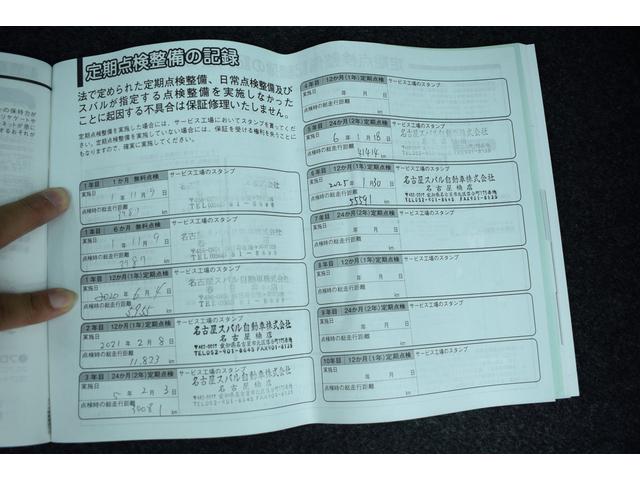 定期点検整備の記録
法で定められた定期点検整備、日常点検整備及び
スバルが指定する点検整備を実施しなかった
ことに起因する不具合は保証修理いたしません。
定期点検整備を実施した場合には、サービス工場においてスタンプを貰ってくだ
さい。定期点検整備を実施していない場合には、保証を受ける権利を失うことに
もなりますので、確実に実施してください。
1年目 1か月 無料点検 サービス工場のスタンプ
実施日
1年 11月 9日
点検時の総走行距離
km
1年目 6か月 無料点検 サービス工場のスタンプ
実施日
1年 11月 9日
点検時の総走行距離
2787 km
1年目 12か月(1年)定期点検 サービス工場のスタンプ
実施日
2020年 6月 4日
点検時の総走行距離
5955 km
2年目 12か月(1年)定期点検 サービス工場のスタンプ
実施日
2021年 2月 8日
点検時の総走行距離
11,823 km
名古屋スバル自動車株式会社
名古屋楠店
TEL052-901-8645 FAX901-8125
3年目 24か月(2年)定期点検 サービス工場のスタンプ
実施日
5年 2月 3日
点検時の総走行距離
30081 km
名古屋スバル自動車株式会社
名古屋楠店
4年目 12か月(1年)定期点検 サービス工場のスタンプ
実施日
年 月 日
点検時の総走行距離
km
5年目 24か月(2年)定期点検 サービス工場のスタンプ
実施日
6年 1月 18日
点検時の総走行距離
41414 km
名古屋スバル自動車株式会社
6年目 12か月(1年)定期点検 サービス工場のスタンプ
実施日
2025年 1月 30日
点検時の総走行距離
km
名古屋スバル自動車株式会社
名古屋楠店
TEL052-901-8645 FAX901-8125
7年目 24か月(2年)定期点検 サービス工場のスタンプ
実施日
年 月 日
点検時の総走行距離
km
8年目 12か月(1年)定期点検 サービス工場のスタンプ
実施日
年 月 日
点検時の総走行距離
km
9年目 24か月(2年)定期点検 サービス工場のスタンプ
実施日
年 月 日
点検時の総走行距離
km
10年目 12か月(1年)定期点検 サービス工場のスタンプ
実施日
年 月 日
点検時の総走行距離
km